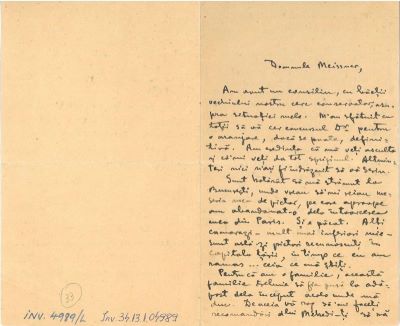 Domnule Meissner,
Am avut un consiliu, cu frații
vechiului nostru cerc conservator, asu-
pra situației mele. M'au sfătuit cu
toții să vă cer concursul Dv. pentru
o aranjare, dacă se poate, defini-
tivă. Am credința că mă veți asculta
și că-mi veți da tot sprijinul. Altmin-
teri nici n'ași fi îndrăznit să vă scriu.
Sunt hotărât să mă strămut la
București, unde vreau să-mi reiau me-
seria mea de pictor, pe care aproape
am abandonat-o dela întoarcerea
mea din Paris. Și e păcat. Alți
camarazi - mult mai inferiori mie -
sunt astăzi pictori recunoscuți în
capitala țării, în timp ce eu am
rămas ... ceea ce mă știți.
Pentru că am o familie, această
familie trebuie să fie pusă la adă-
post dela început acolo unde mă
duc. De aceia vă rog să-mi faceți
recomandări alui Mehedinți. Să mă
33
inv. 4989/L Inv. 34.13.1.04989